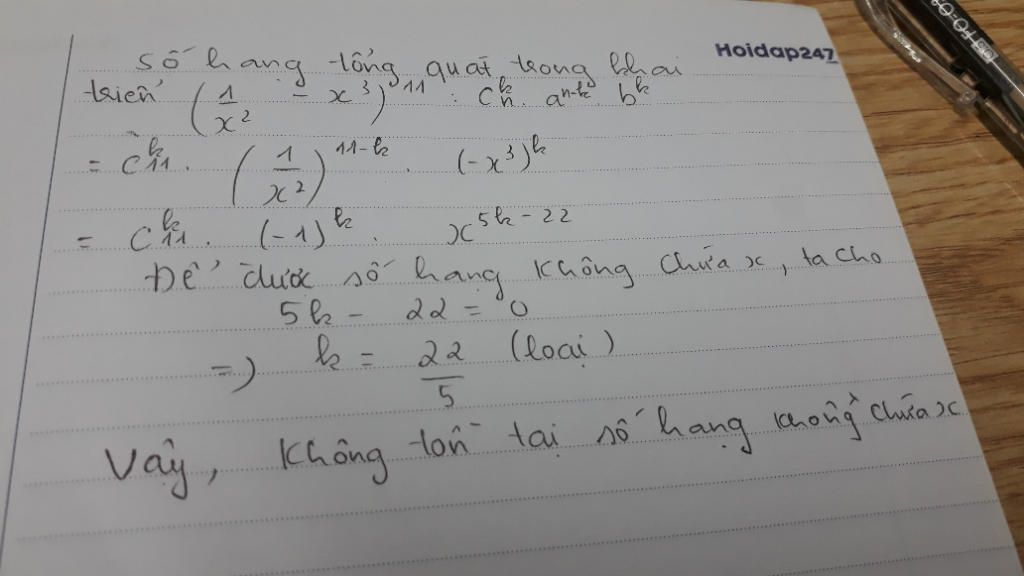 Hoidap247
Số hạng tổng quát trong khai
triển (1/x² - x³)¹¹ : Cₙᵏ. aⁿ⁻ᵏ. bᵏ
= C₁₁ᵏ. (1/x²)¹¹⁻ᵏ . (-x³)ᵏ
= C₁₁ᵏ. (-1)ᵏ. x⁵ᵏ⁻²²
Để được số hạng không chứa x, ta cho
5k - 22 = 0
=> k = 22/5 (loại)
Vậy, không tồn tại số hạng không chứa x